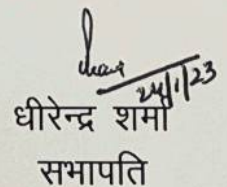 24/1/23
धीरेन्द्र शर्मा
सभापति